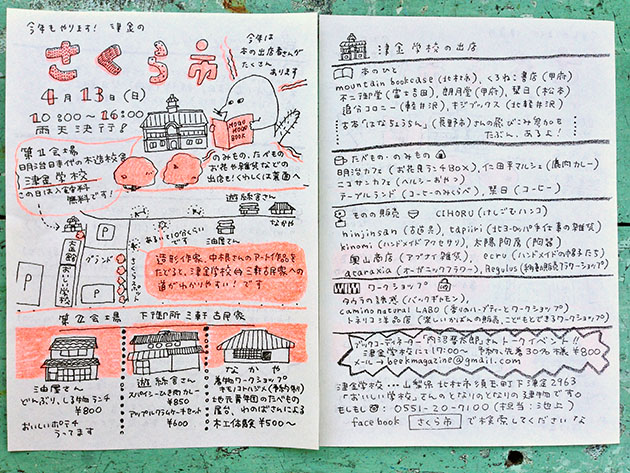 今年もやります! 津金の
さくら市
今年は
本の出店者さんが
たくさん
あります
4月13日(日)
10:00～16:00
雨天決行!
MOGU
MOGU
BOOK
第Ⅰ会場
明治時代の木造校舎
津金学校
この日は入館料
無料です!
のみもの、たべもの
お花や雑貨などの
出店も!くわしくは裏面へ
遊絲舎さん
なかや
油屋さん
あるいて10分くらい
です
大正館
おいしい学校
グランド
さくらぶろ
P
P
P
造形作家、中根さんのアート作品を
たどると、津金学校から三軒古民家への
道がわかりやすい!です
第Ⅱ会場 下津金御所 三軒古民家
油屋さん
どんぶり、しる物ランチ
¥800
おいしいポテチ
うってます
遊絲舎さん
スパイシーひき肉カレー
¥850
アップルクラムケーキセット
¥600
なかや
着物ワークショップ
(予約制)
地元青年団のたべもの
屋台、わのばさんによる
木工体験 ¥500～
津金学校の出店
本のひと
mountain bookcase (北杜市)、くろねこ書店 (甲府)
不二御堂 (富士吉田)、朗月堂 (甲府)、栞日 (松本)
追分コロニー (軽井沢)、キジブックス (北軽井沢)
古本「はなきょうちん」(長野市)さんの飛びこみ参加も
たぶん、あるよ!
たべもの・のみもの
明治カフェ (お花見ランチBOX)、仁田平マルシェ (鹿肉カレー)
ニコサンカフェ (ヘルシーおやつ)
テーブルランド (コーヒーのみくらべ)、栞日 (コーヒー)
ものの販売 CIHORU (けしごむハンコ)
hinjinsan (古道具)、tapiiri (北ヨーロッパ手仕事の雑貨)
kinomi (ハンドメイドアクセサリ)、太陽陶房 (陶器)
奥山商店 (アヅマイ雑貨)、ecru (ハンドメイドの帽子たち)
ataraxia (オーガニックフラワー)、Regulus (物販ワークショップ)
ワークショップ
タカラの誘惑 (バックギャモン)、
camino natural LABO (香りのハーブティーとワークショップ)
トネリコ洋品店 (楽しいかばんの販売、こどもとできるワークショップ)
ブックコーディネーター「内沼晋太郎」さん トークイベント!!
津金学校にて 17:00～ 予約、先着30名様 ¥800
メール→beekmagazine@gmail.com
津金学校 … 山梨県北杜市須玉町下津金2963
「おいしい学校」さんのとなりのとなりの建物です。
もしもし: 0551-20-7100 (担当:池上)
facebook さくら市 で検索してくださいな